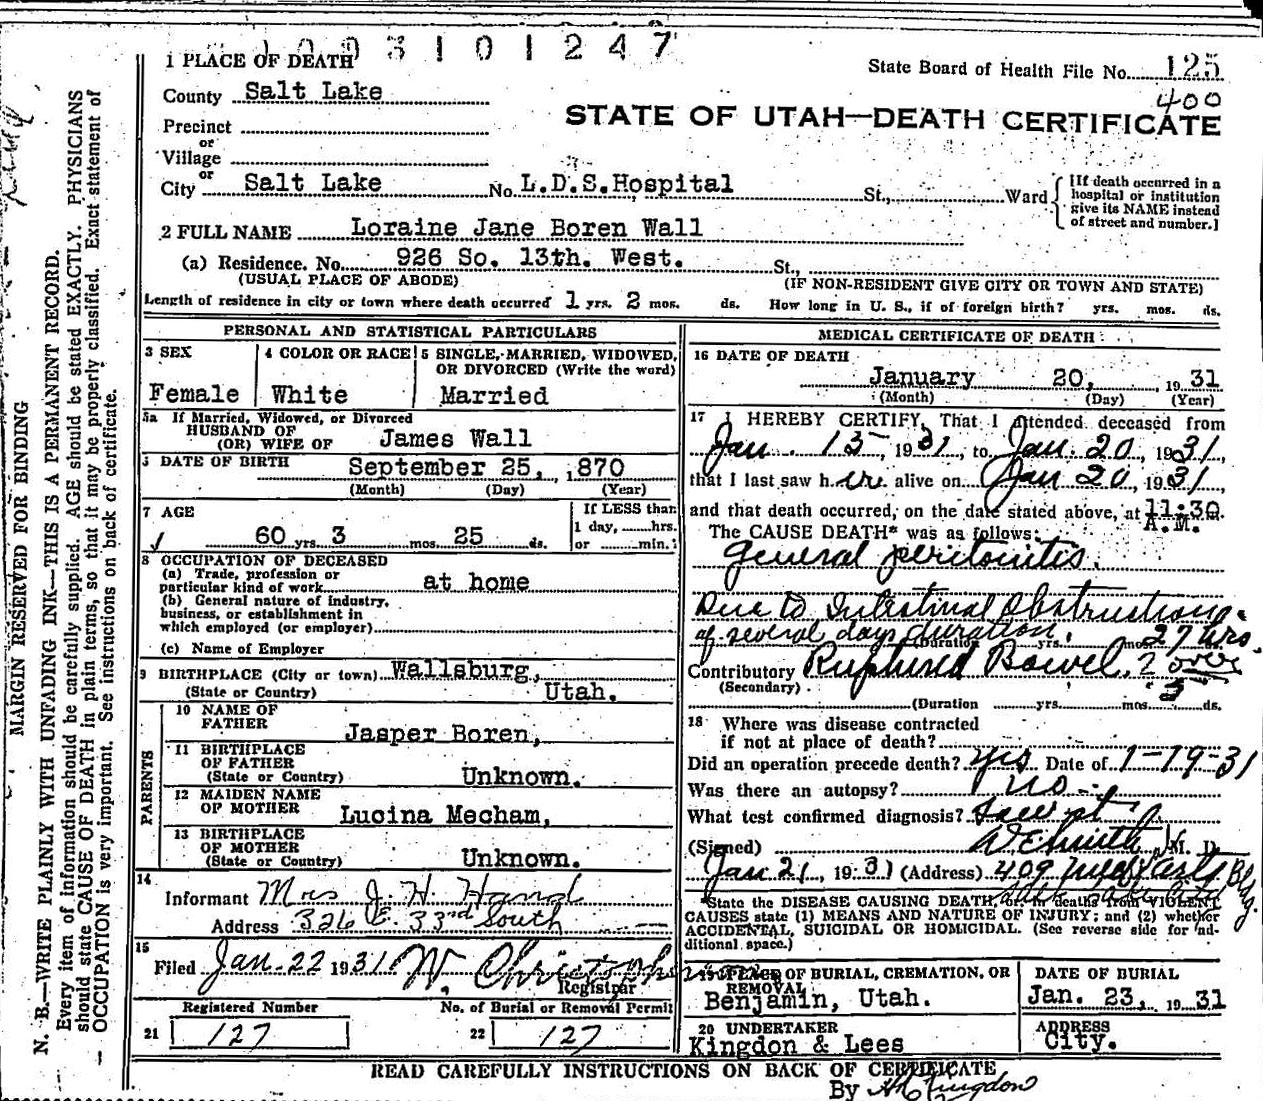 1003101247
1 PLACE OF DEATH
State Board of Health File No. 125
400
County Salt Lake
STATE OF UTAH—DEATH CERTIFICATE
Precinct
or
Village
or
City Salt Lake No. L.D.S. Hospital St., Ward
[If death occurred in a hospital or institution give its NAME instead of street and number.]
2 FULL NAME Loraine Jane Boren Wall
(a) Residence. No. 926 So. 13th. West. St.,
(USUAL PLACE OF ABODE) (IF NON-RESIDENT GIVE CITY OR TOWN AND STATE)
Length of residence in city or town where death occurred 1 yrs. 2 mos. ds. How long in U. S., if of foreign birth? yrs. mos. ds.
PERSONAL AND STATISTICAL PARTICULARS
3 SEX
Female
4 COLOR OR RACE
White
5 SINGLE, MARRIED, WIDOWED, OR DIVORCED (Write the word)
Married
5a If Married, Widowed, or Divorced
HUSBAND OF
(OR) WIFE OF James Wall
DATE OF BIRTH September 25, 1870
(Month) (Day) (Year)
7 AGE
60 yrs. 3 mos. 25 ds.
If LESS than
1 day, hrs.
or min.
8 OCCUPATION OF DECEASED
(a) Trade, profession or
particular kind of work at home
(b) General nature of industry,
business, or establishment in
which employed (or employer)
(c) Name of Employer
9 BIRTHPLACE (City or town) Wallsburg,
(State or Country) Utah.
PARENTS
10 NAME OF
FATHER Jasper Boren,
11 BIRTHPLACE
OF FATHER
(State or Country) Unknown.
12 MAIDEN NAME
OF MOTHER Lucina Mecham,
13 BIRTHPLACE
OF MOTHER
(State or Country) Unknown.
14
Informant Mrs J. H. Hand
Address 326 E. 33rd South
15
Filed Jan. 22 1931 W. Christopherson
Registrar
Registered Number
21 127
No. of Burial or Removal Permit
22 127
MEDICAL CERTIFICATE OF DEATH
16 DATE OF DEATH
January 20, 1931
(Month) (Day) (Year)
17 I HEREBY CERTIFY, That I attended deceased from
Jan. 15, 1931, to Jan. 20, 1931,
that I last saw her alive on Jan 20, 1931,
and that death occurred, on the date stated above, at 11:30 A.M.
The CAUSE DEATH* was as follows:
General peritonitis.
Due to Intestinal Obstruction
of several days duration. 27 hrs.
(Duration yrs. mos. ds.
Contributory Ruptured Bowel, 2 over
(Secondary) 5
(Duration yrs. mos. ds.
18 Where was disease contracted
if not at place of death?
Did an operation precede death? yes Date of 1-19-31
Was there an autopsy? no
What test confirmed diagnosis?
(Signed) M. D.
Jan 21, 1931 (Address) 409 Bldg.
Salt Lake City
*State the DISEASE CAUSING DEATH, or in deaths from VIOLENT
CAUSES state (1) MEANS AND NATURE OF INJURY; and (2) whether
ACCIDENTAL, SUICIDAL OR HOMICIDAL. (See reverse side for ad-
ditional space.)
19 PLACE OF BURIAL, CREMATION, OR
REMOVAL
Benjamin, Utah.
DATE OF BURIAL
Jan. 23, 1931
20 UNDERTAKER
Kingdon & Lees
ADDRESS
City.
READ CAREFULLY INSTRUCTIONS ON BACK OF CERTIFICATE
By Kingdon
MARGIN RESERVED FOR BINDING
N. B.—WRITE PLAINLY WITH UNFADING INK—THIS IS A PERMANENT RECORD.
Every item of information should be carefully supplied. AGE should be stated EXACTLY. PHYSICIANS
should state CAUSE OF DEATH in plain terms, so that it may be properly classified. Exact statement of
OCCUPATION is very important. See instructions on back of certificate.